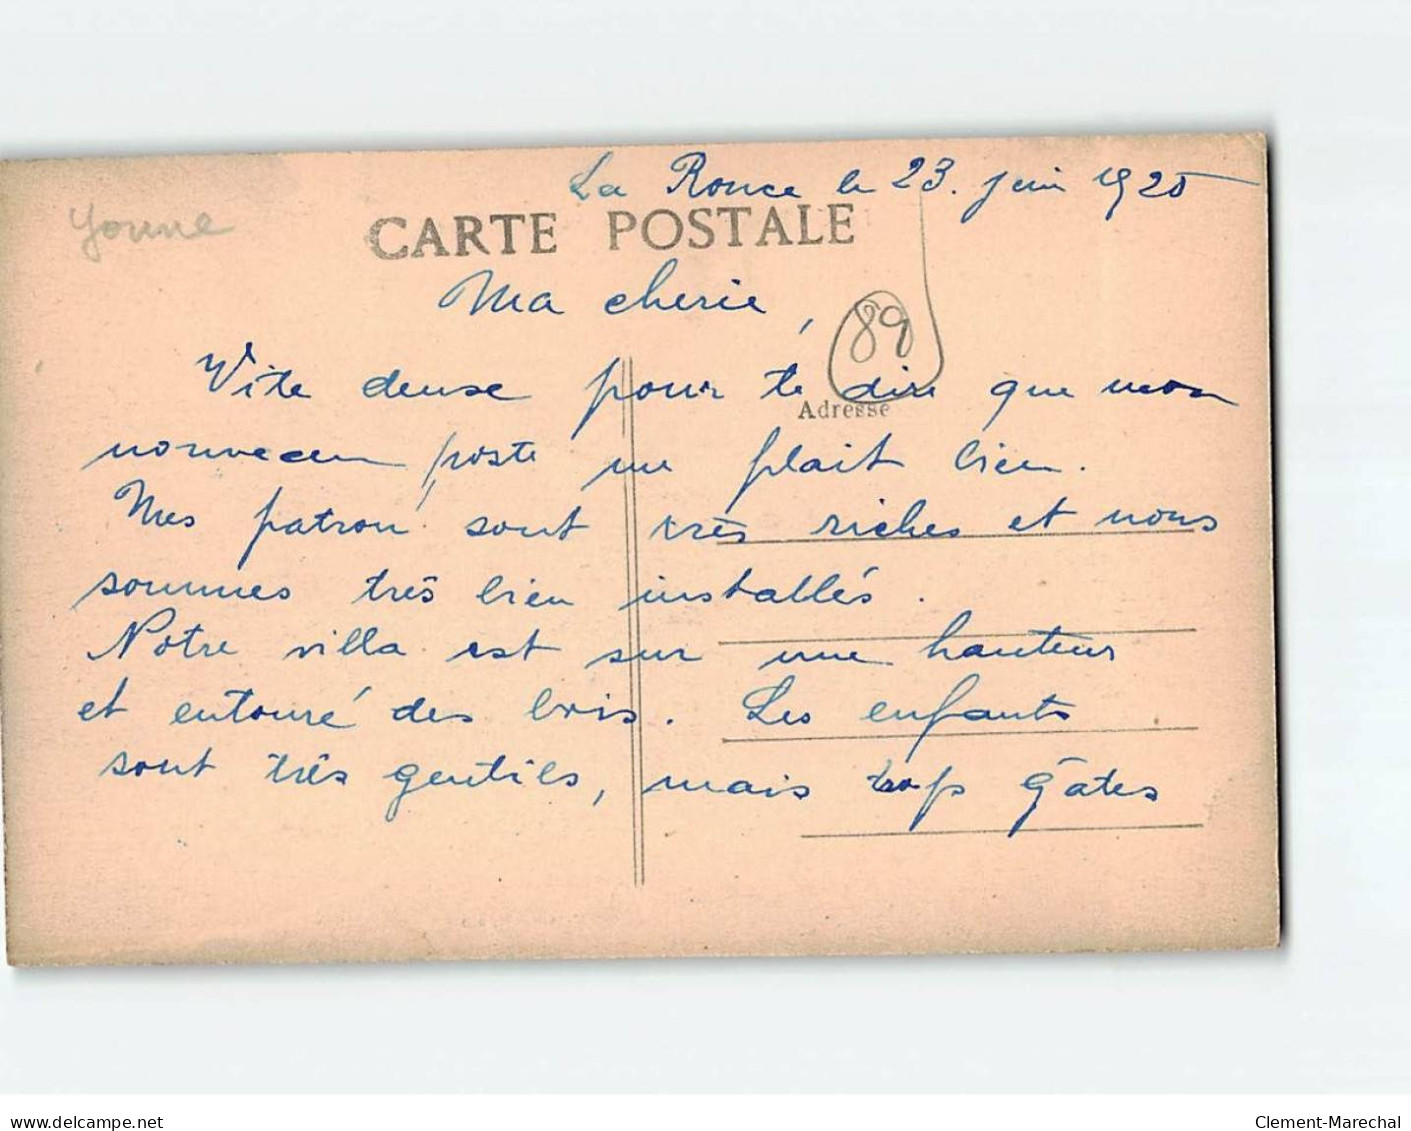 La Ronce le 23. juin 1925
Yonne
CARTE POSTALE
Ma cherie,
89
Vite deuse pour te dire que mon
Adresse
nouveau poste me plait bien.
Mes patron sont très riches et nous
sommes très bien installés.
Notre villa est sur une hauteur
et entouré des bois. Les enfants
sont très gentils, mais trop gates
delcampe.net
Clement-Marechal